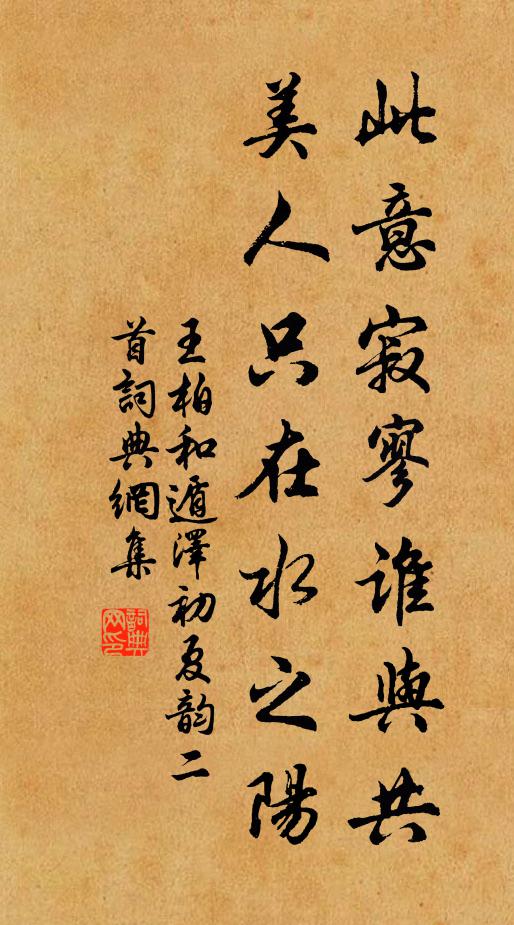 此意寂寥誰與共
美人只在水之陽
王柏和遁澤初夏韵二
首詞典網集
詞典网印